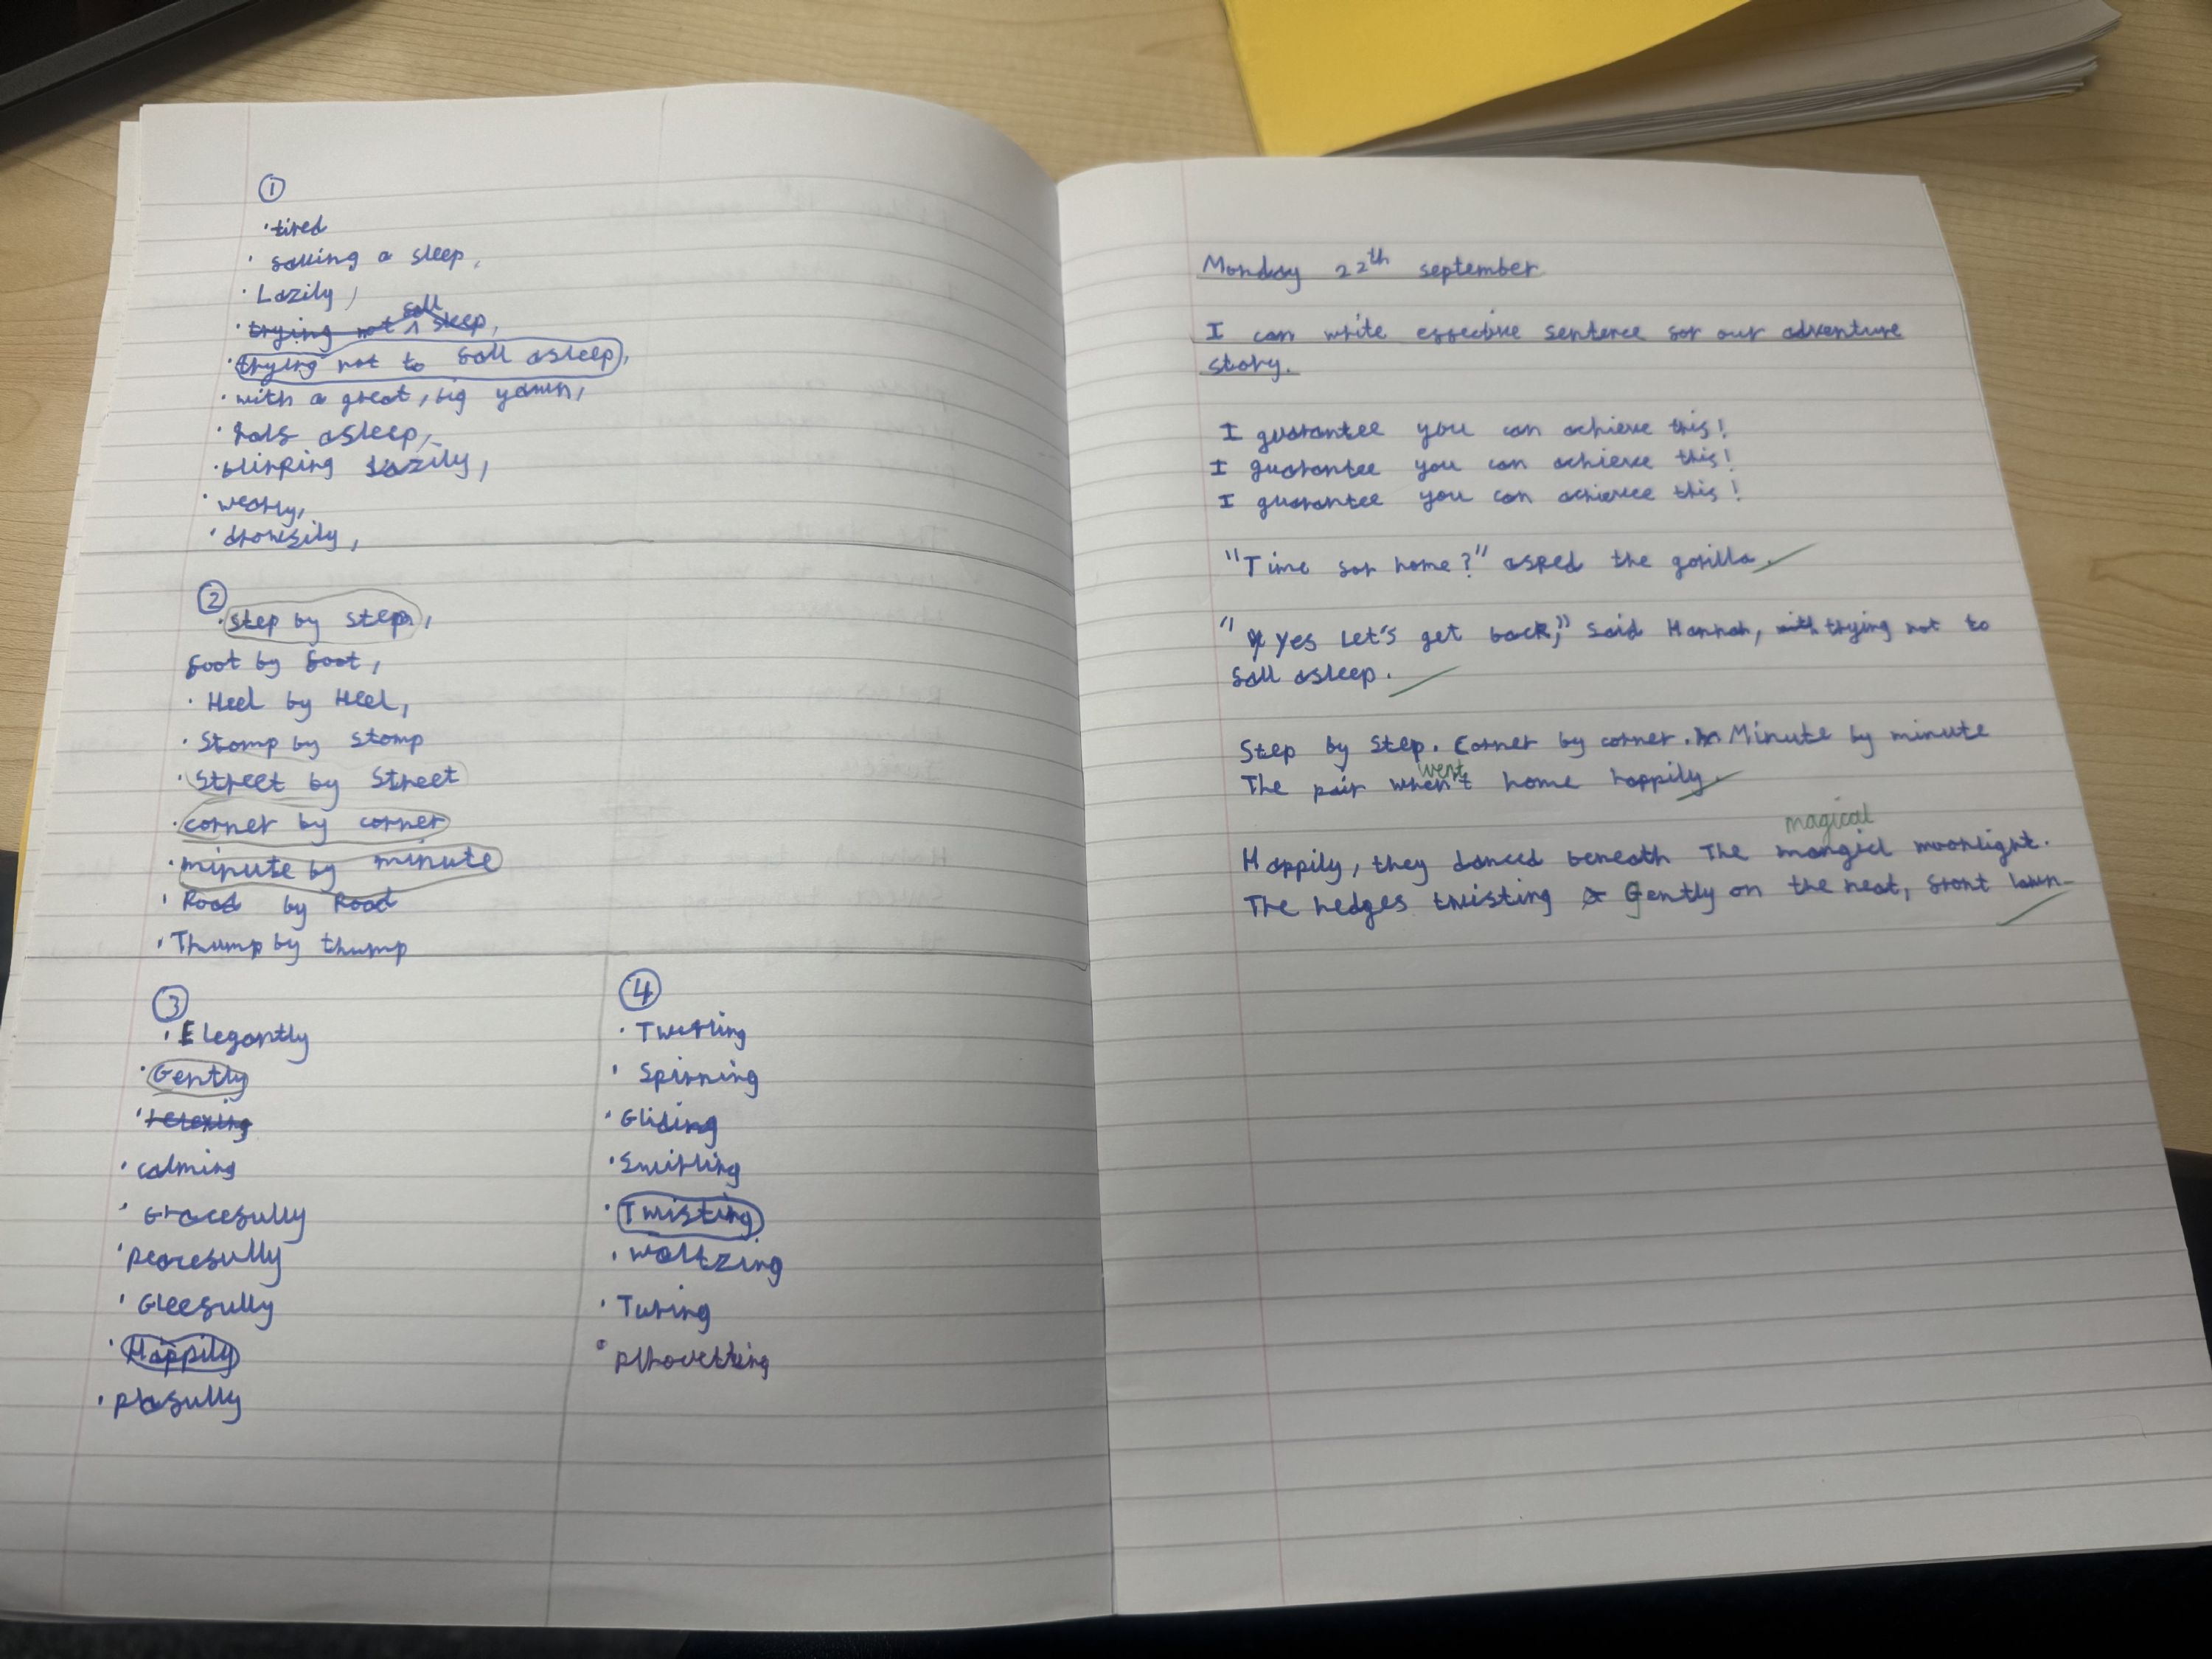 ①
· tired
· falling a sleep,
· Lazily,
· trying not fall sleep,
· trying not to fall asleep,
· with a great, big yawn,
· half asleep,
· blinking lazily,
· weary,
· drowsily,
②
· step by step,
foot by foot,
· Heel by Heel,
· Stomp by stomp
· Street by Street
· corner by corner
· minute by minute
· Road by Road
· Thump by thump
③
· Elegantly
· Gently
· relexing
· calming
· Gracefully
· peacefully
· Gleefully
· Happily
· plafully
④
· Twerling
· Spinning
· Gliding
· Swirling
· Twisting
· waltzing
· Turing
Monday 22th september
I can write effective sentence for our adventure
story.
I guarantee you can achieve this!
I guarantee you can achieve this!
I guarantee you can achievee this!
"Time for home?" asked the gorilla.
"Yes Let's get back," said Hannah, with trying not to
fall asleep.
Step by Step. Corner by corner. Minute by minute
went
The pair when't home happily.
magical
Happily, they danced beneath The mangicl moonlight.
The hedges twisting Gently on the neat, front lawn.